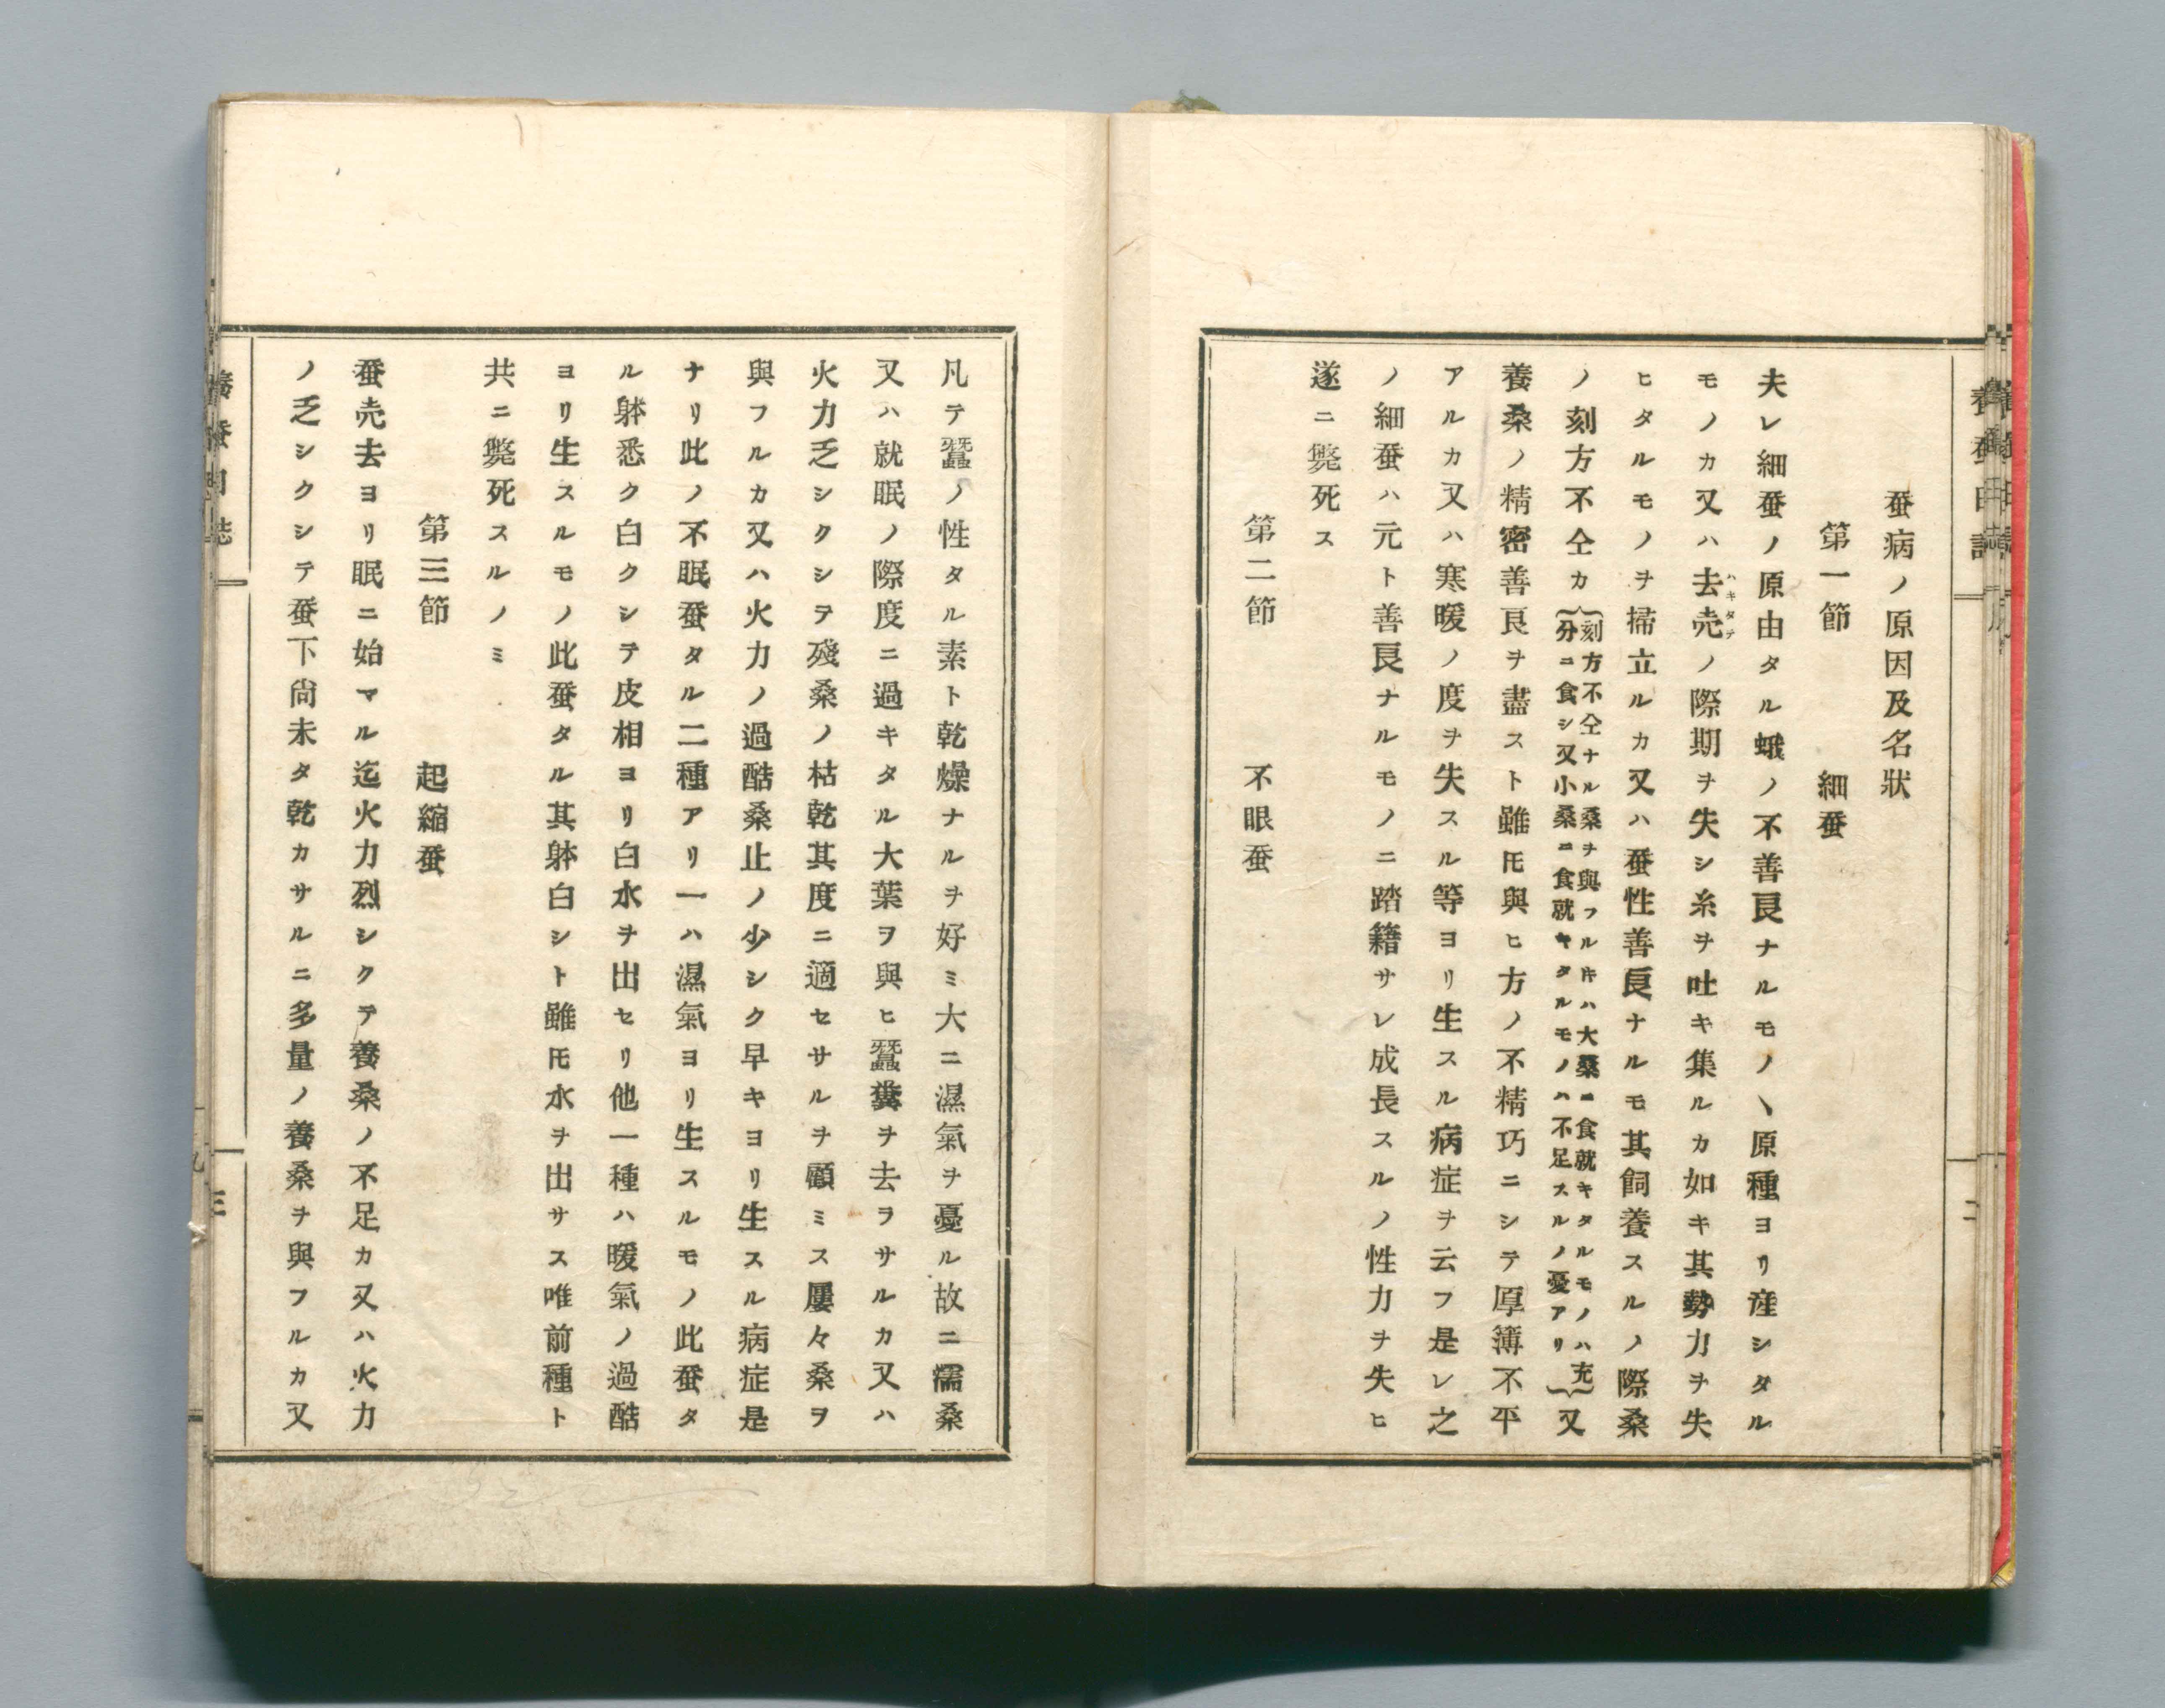 蚕病ノ原因及名狀
第一節 細蚕
夫レ細蚕ノ原由タル蛾ノ不善良ナルモノヽ原種ヨリ産シタル
モノカ又ハ去売ノ際期ヲ失シ糸ヲ吐キ集ルカ如キ其勢力ヲ失
ハキタテ
ヒタルモノヲ掃立ルカ又ハ蚕性善良ナルモ其飼養スルノ際桑
ノ刻方不仝カ
刻方不仝ナル桑ヲ與フル𬼀ハ大桑ニ食就キタルモノハ充
分ニ食シ又小桑ニ食就キタルモノハ不足スルノ憂アリ
又
養桑ノ精密善良ヲ盡スト雖𪜈與ヒ方ノ不精巧ニシテ厚簿不平
アルカ又ハ寒暖ノ度ヲ失スル等ヨリ生スル病症ヲ云フ是レ之
ノ細蚕ハ元ト善良ナルモノニ踏籍サレ成長スルノ性力ヲ失ヒ
遂ニ斃死ス
第二節 不眼蚕
二
凡テ蠶ノ性タル素ト乾燥ナルヲ好ミ大ニ濕氣ヲ憂ル故ニ濡桑
又ハ就眠ノ際度ニ過キタル大葉ヲ與ヒ蠶糞ヲ去ラサルカ又ハ
火力乏シクシテ殘桑ノ枯乾其度ニ適セサルヲ顧ミス屢々桑ヲ
與フルカ又ハ火力ノ過酷桑止ノ少シク早キヨリ生スル病症是
ナリ此ノ不眠蚕タル二種アリ一ハ濕氣ヨリ生スルモノ此蚕タ
ル躰悉ク白クシテ皮相ヨリ白水ヲ出セリ他一種ハ暖氣ノ過酷
ヨリ生スルモノ此蚕タル其躰白シト雖𪜈水ヲ出サス唯前種ト
共ニ斃死スルノミ
第三節 起縮蚕
蚕売去ヨリ眠ニ始マル迄火力烈シクテ養桑ノ不足カ又ハ火力
ノ乏シクシテ蚕下尙未タ乾カサルニ多量ノ養桑ヲ與フルカ又
三